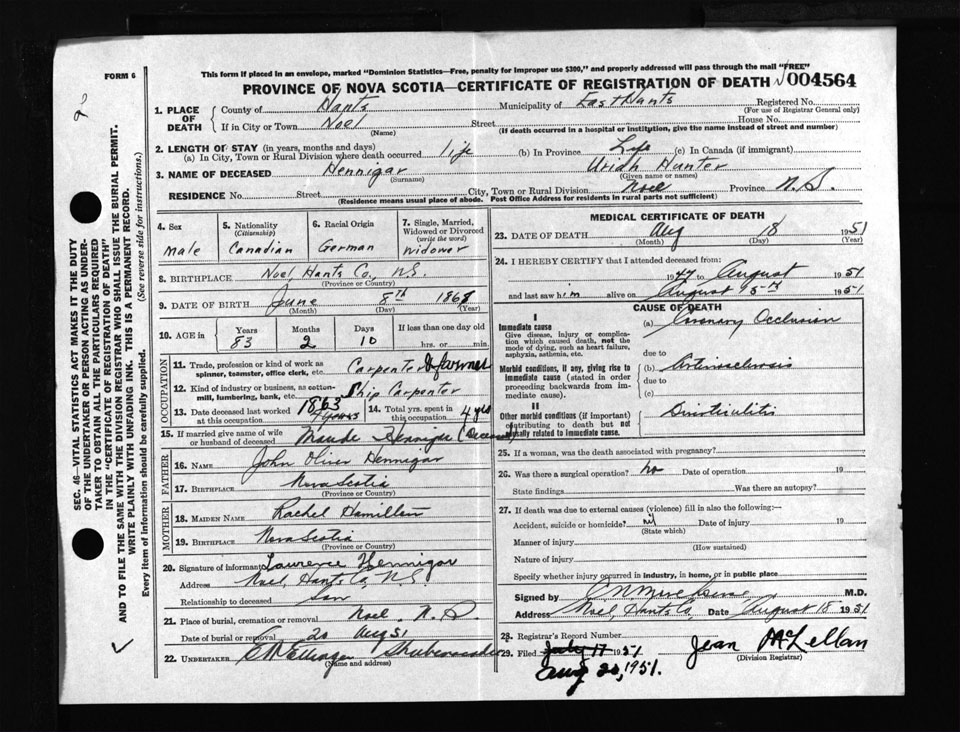 FORM 6
This form if placed in an envelope, marked "Dominion Statistics—Free, penalty for improper use $300," and properly addressed will pass through the mail "FREE"
PROVINCE OF NOVA SCOTIA—CERTIFICATE OF REGISTRATION OF DEATH 004564
1. PLACE OF DEATH
County of Hants Municipality of East Hants Registered No.
(For use of Registrar General only)
If in City or Town Noel Street House No.
(Name) (If death occurred in a hospital or institution, give the name instead of street and number)
2. LENGTH OF STAY (in years, months and days)
(a) In City, Town or Rural Division where death occurred life (b) In Province Life (c) In Canada (if immigrant)
3. NAME OF DECEASED Hennigar Uriah Hunter
(Surname) (Given name or names)
RESIDENCE No. Street City, Town or Rural Division Noel Province N.S.
(Residence means usual place of abode. Post Office Address for residents in rural parts not sufficient)
4. Sex male
5. Nationality (Citizenship) Canadian
6. Racial Origin German
7. Single, Married, Widowed or Divorced (write the word) Widower
8. BIRTHPLACE Noel, Hants Co., N.S.
(Province or Country)
9. DATE OF BIRTH June 8th 1868
(Month) (Day) (Year)
10. AGE in Years 83 Months 2 Days 10 If less than one day old
hrs. or min.
OCCUPATION
11. Trade, profession or kind of work as spinner, teamster, office clerk, etc. Carpenter & farmer
12. Kind of industry or business, as cotton-mill, lumbering, bank, etc. Ship Carpenter
13. Date deceased last worked at this occupation 1863
14. Total yrs. spent in this occupation 4 yrs
15. If married give name of wife or husband of deceased Maude Hennigar (Deceased)
FATHER
16. NAME John Oliver Hennigar
17. BIRTHPLACE Nova Scotia
(Province or Country)
MOTHER
18. MAIDEN NAME Rachel Hamilton
19. BIRTHPLACE Nova Scotia
(Province or Country)
20. Signature of informant Laurence Hennigar
Address Noel, Hants Co, N.S
Relationship to deceased Son
21. Place of burial, cremation or removal Noel. N.S
Date of burial or removal 20 Aug 51
22. UNDERTAKER
(Name and address)
MEDICAL CERTIFICATE OF DEATH
23. DATE OF DEATH Aug 18 1951
(Month) (Day) (Year)
24. I HEREBY CERTIFY that I attended deceased from:
1947 to August 1951
and last saw him alive on August 15th 1951
CAUSE OF DEATH
I
Immediate cause
Give disease, injury or complication which caused death, not the mode of dying, such as heart failure, asphyxia, asthenia, etc.
(a) Coronary Occlusion
due to
Morbid conditions, if any, giving rise to immediate cause (stated in order proceeding backwards from immediate cause).
(b) Arteriosclerosis
due to
(c)
II
Other morbid conditions (if important) contributing to death but not causally related to immediate cause.
25. If a woman, was the death associated with pregnancy?
26. Was there a surgical operation? no Date of operation 19
State findings Was there an autopsy?
27. If death was due to external causes (violence) fill in also the following:—
Accident, suicide or homicide? nil Date of injury 19
(State which)
Manner of injury
(How sustained)
Nature of injury
Specify whether injury occurred in industry, in home, or in public place
Signed by M.D.
Address Noel, Hants Co, Date August 18 1951
28. Registrar's Record Number
29. Filed July 17 1951 Jean McLellan
Aug 20, 1951. (Division Registrar)
SEC. 46—VITAL STATISTICS ACT MAKES IT THE DUTY
OF THE UNDERTAKER OR PERSON ACTING AS UNDER-
TAKER TO OBTAIN ALL THE PARTICULARS REQUIRED
IN THE "CERTIFICATE OF REGISTRATION OF DEATH"
AND TO FILE THE SAME WITH THE DIVISION REGISTRAR WHO SHALL ISSUE THE BURIAL PERMIT.
WRITE PLAINLY WITH UNFADING INK. THIS IS A PERMANENT RECORD.
Every item of information should be carefully supplied. (See reverse side for instructions.)